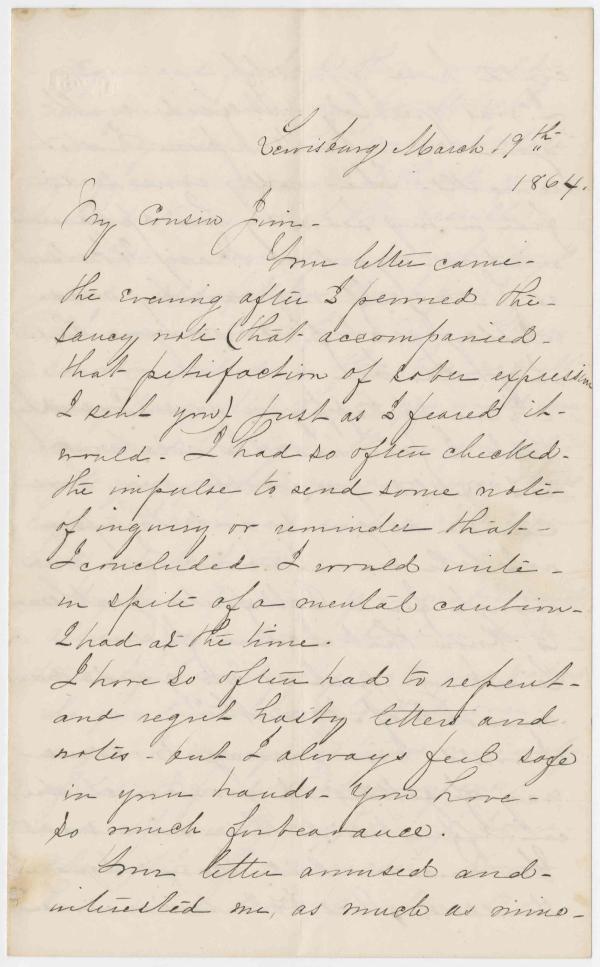 Lewisburg March 19th
1864.
My Cousin Jim -
Your letter came -
the evening after I penned the -
saucy note (that accompanied -
that petrifaction of sober expression
I sent you) just as I feared it -
would - I had so often checked -
the impulse to send some note -
of inquiry or reminder that -
I concluded I would write -
in spite of a mental caution -
I had at the time.
I have so often had to repent -
and regret hasty letters and
notes - but I always feel safe
in your hands - You have -
so much forbearance.
Your letter amused and -
interested me, as much as mine -